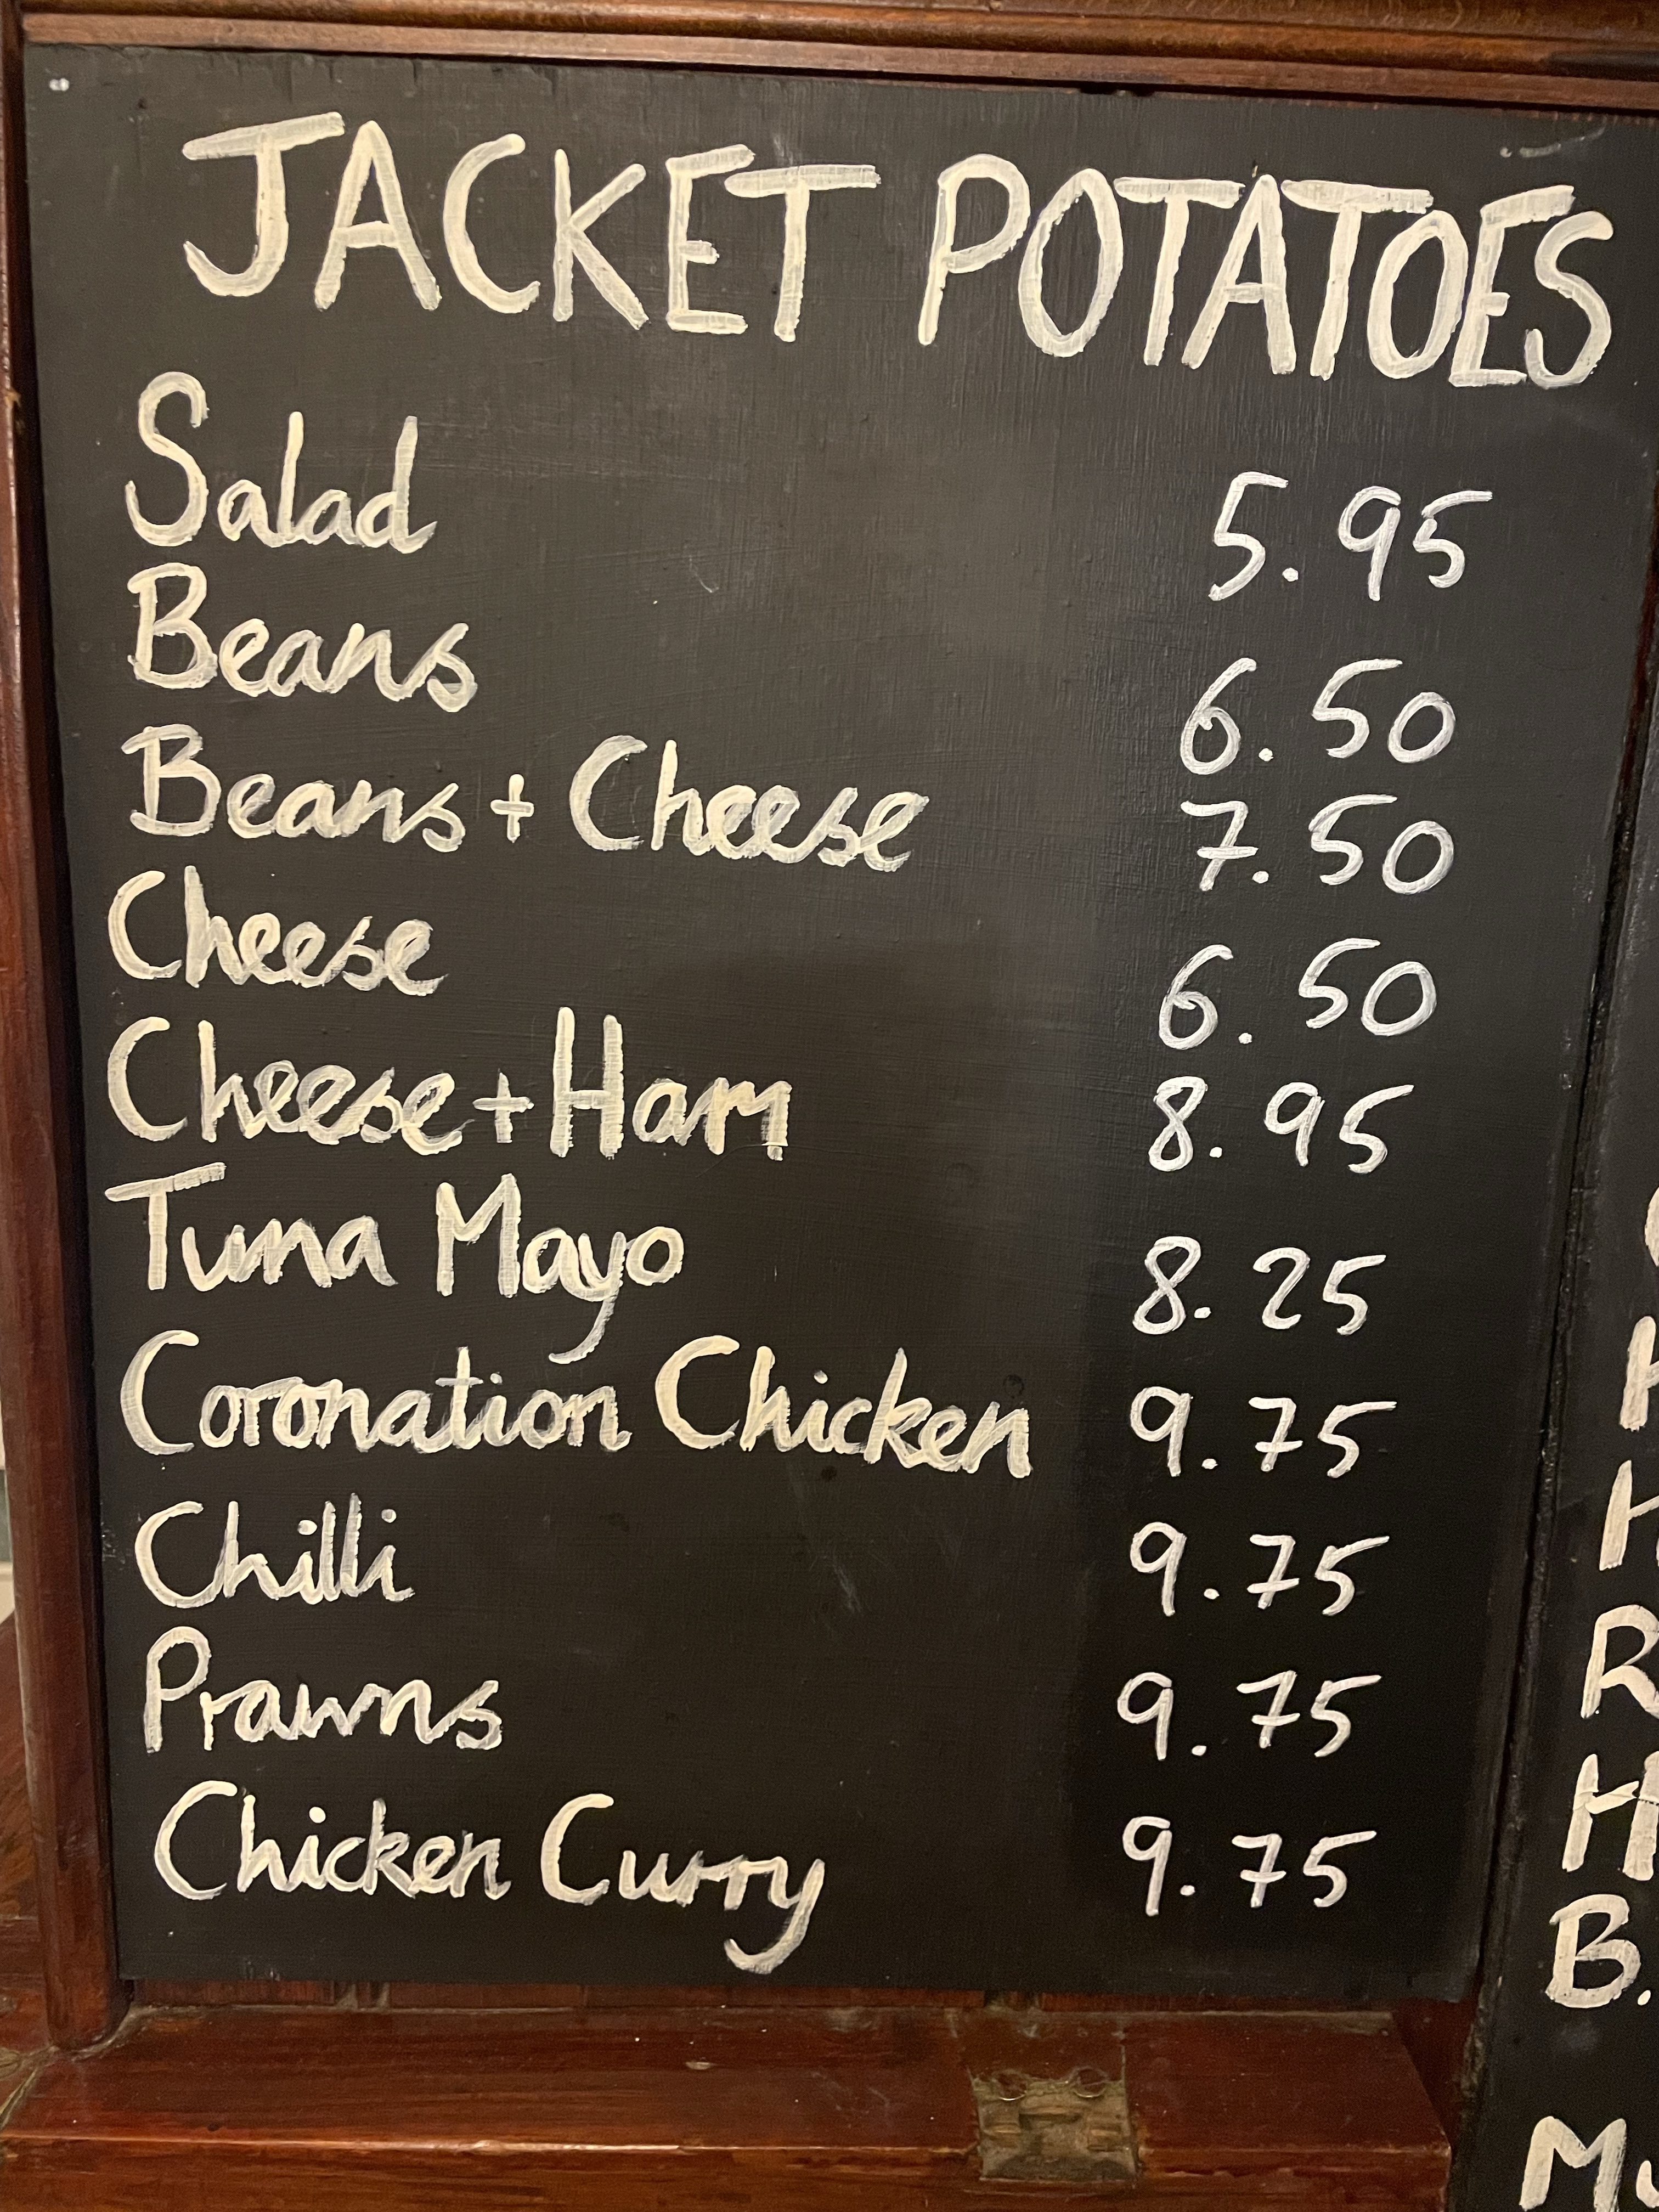 JACKET POTATOES
Salad 5.95
Beans 6.50
Beans + Cheese 7.50
Cheese 6.50
Cheese + Ham 8.95
Tuna Mayo 8.25
Coronation Chicken 9.75
Chilli 9.75
Prawns 9.75
Chicken Curry 9.75